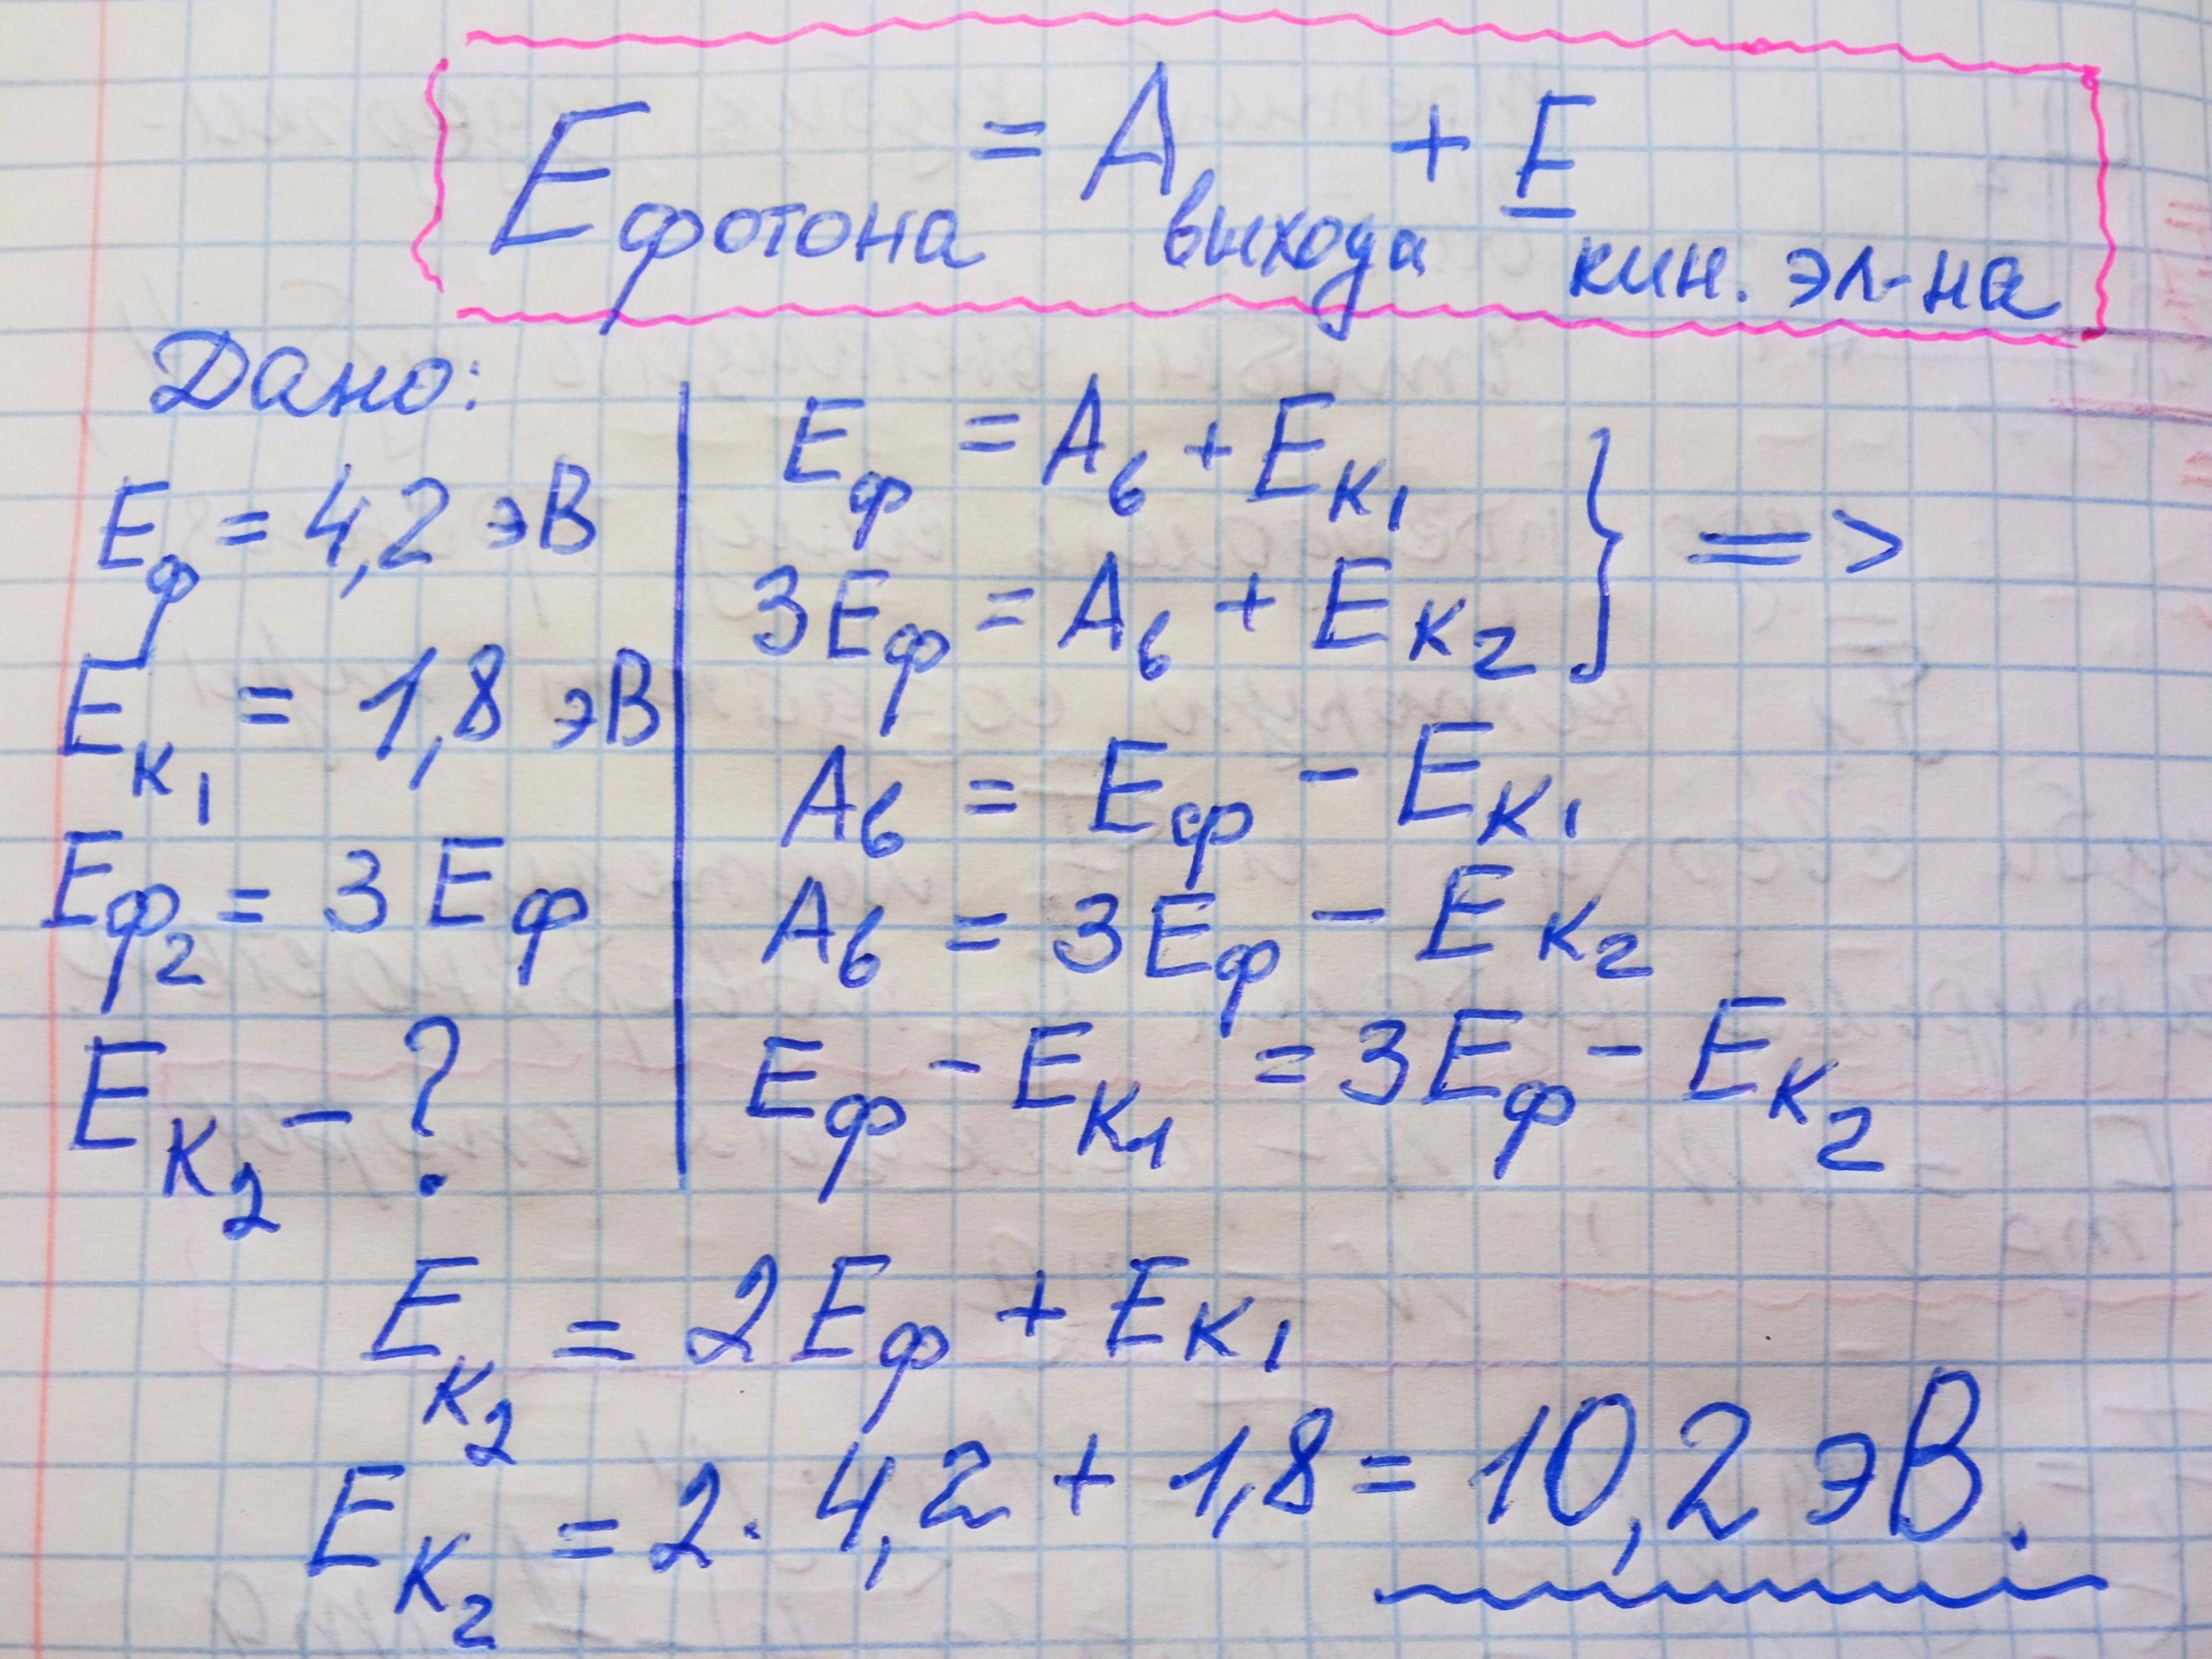 Eфотона = Aвыхода + E кин. эл-на
Дано:
Eф = 4,2 эВ
Eк1 = 1,8 эВ
Eф2 = 3 Eф
Eк2 - ?
Eф = Aв + Eк1
3Eф = Aв + Eк2
} =>
Aв = Eф - Eк1
Aв = 3Eф - Eк2
Eф - Eк1 = 3Eф - Eк2
Eк2 = 2Eф + Eк1
Eк2 = 2 · 4,2 + 1,8 = 10,2 эВ.